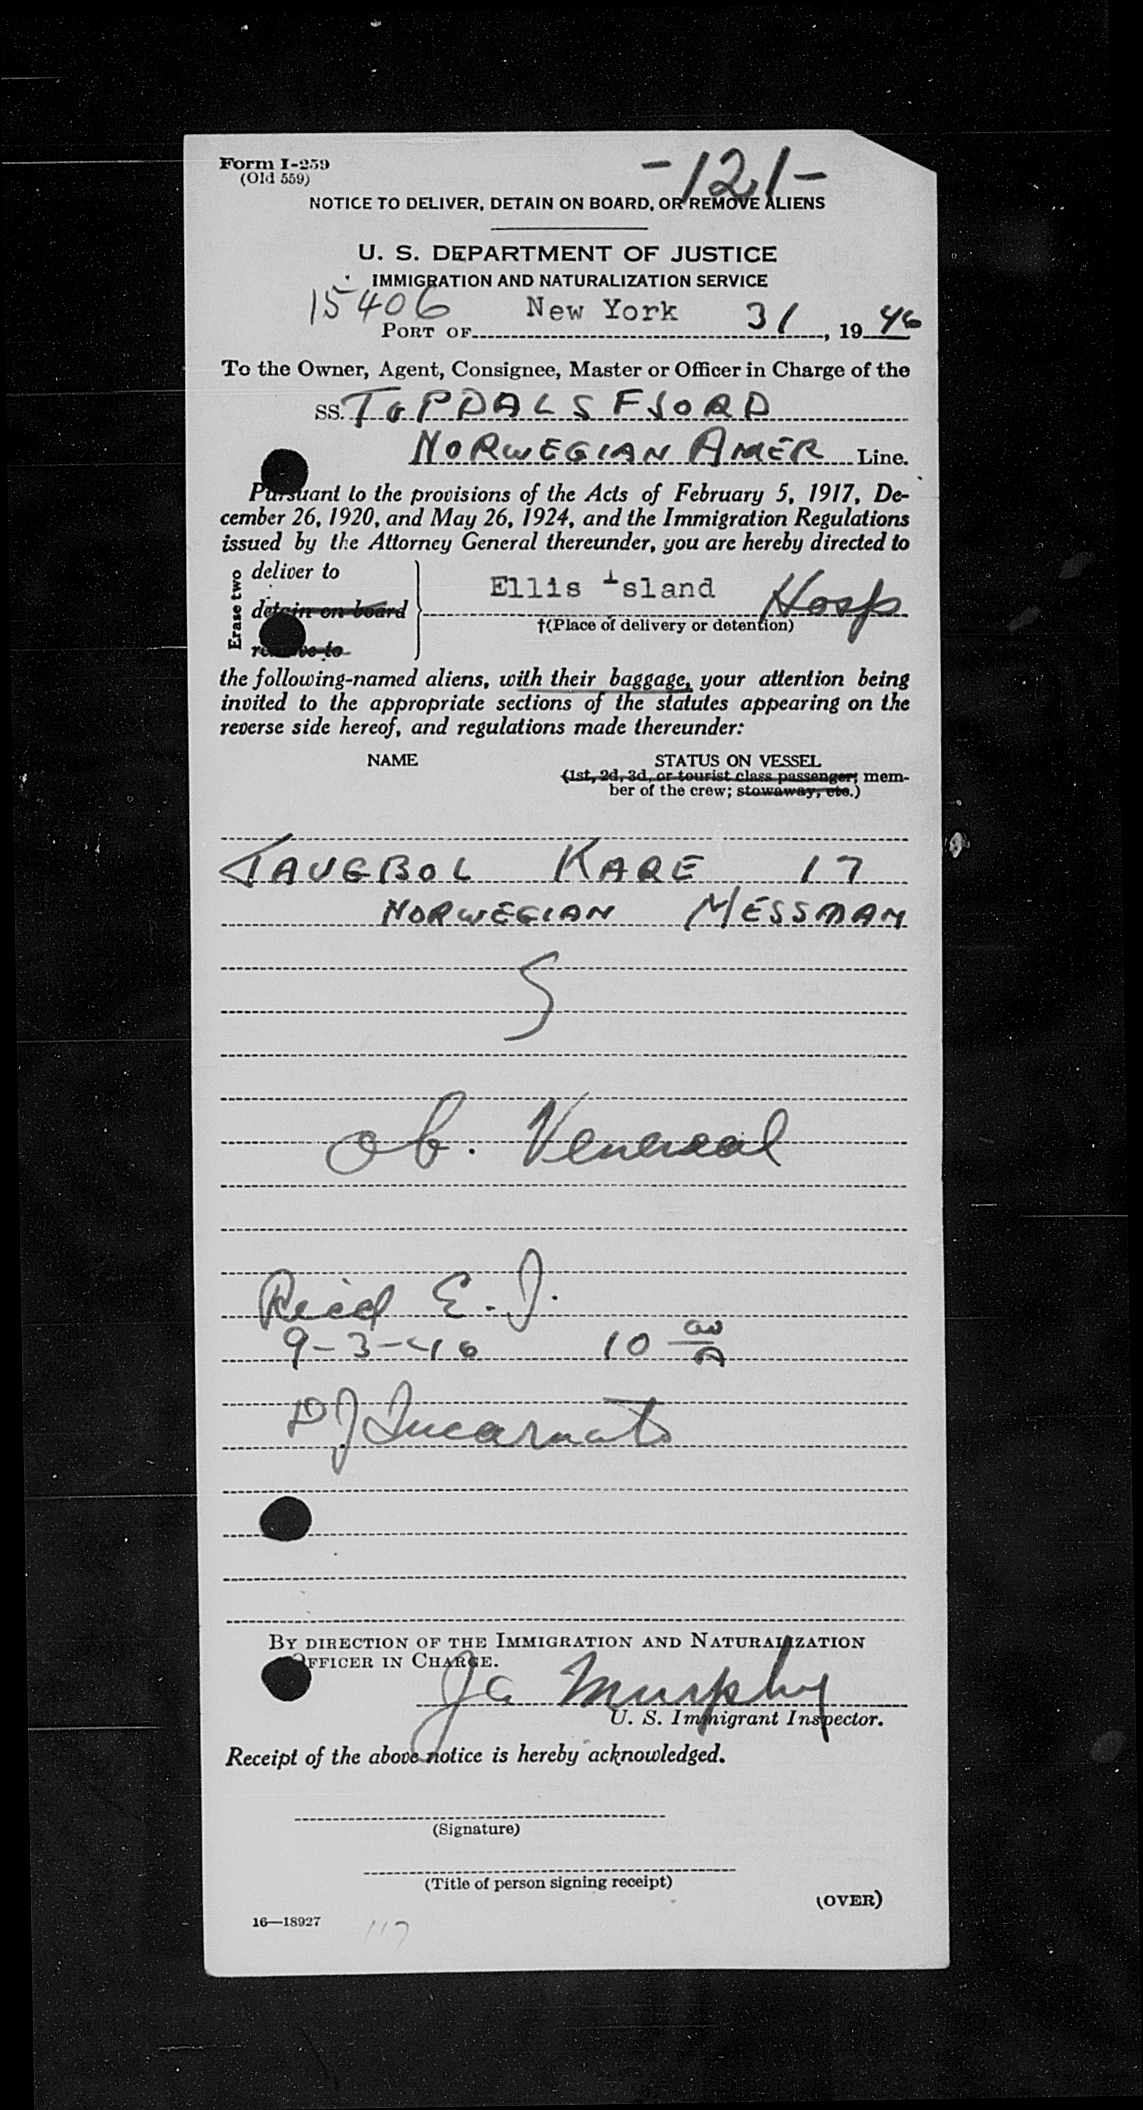 Form I-259
(Old 559)
-121-
NOTICE TO DELIVER, DETAIN ON BOARD, OR REMOVE ALIENS
U. S. DEPARTMENT OF JUSTICE
IMMIGRATION AND NATURALIZATION SERVICE
15406
PORT OF New York 31, 19 46
To the Owner, Agent, Consignee, Master or Officer in Charge of the
SS. TOPDALSFJORD
NORWEGIAN AMER Line.
Pursuant to the provisions of the Acts of February 5, 1917, De-
cember 26, 1920, and May 26, 1924, and the Immigration Regulations
issued by the Attorney General thereunder, you are hereby directed to
Erase two
deliver to
detain on board
remove to
Ellis Island Hosp
†(Place of delivery or detention)
the following-named aliens, with their baggage, your attention being
invited to the appropriate sections of the statutes appearing on the
reverse side hereof, and regulations made thereunder:
NAME
STATUS ON VESSEL
(1st, 2d, 3d, or tourist class passenger; mem-
ber of the crew; stowaway, etc.)
TAUGBOL KARE 17
NORWEGIAN MESSMAN
S
ob. Venereal
Recd E. I.
9-3-46 10 00/A
D J Incarnato
BY DIRECTION OF THE IMMIGRATION AND NATURALIZATION
OFFICER IN CHARGE.
J C Murphy
U. S. Immigrant Inspector.
Receipt of the above notice is hereby acknowledged.
(Signature)
(Title of person signing receipt)
(OVER)
16—18927
117